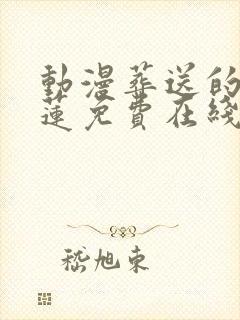 動漫葬送的
蓮免費在綫
嵇旭東